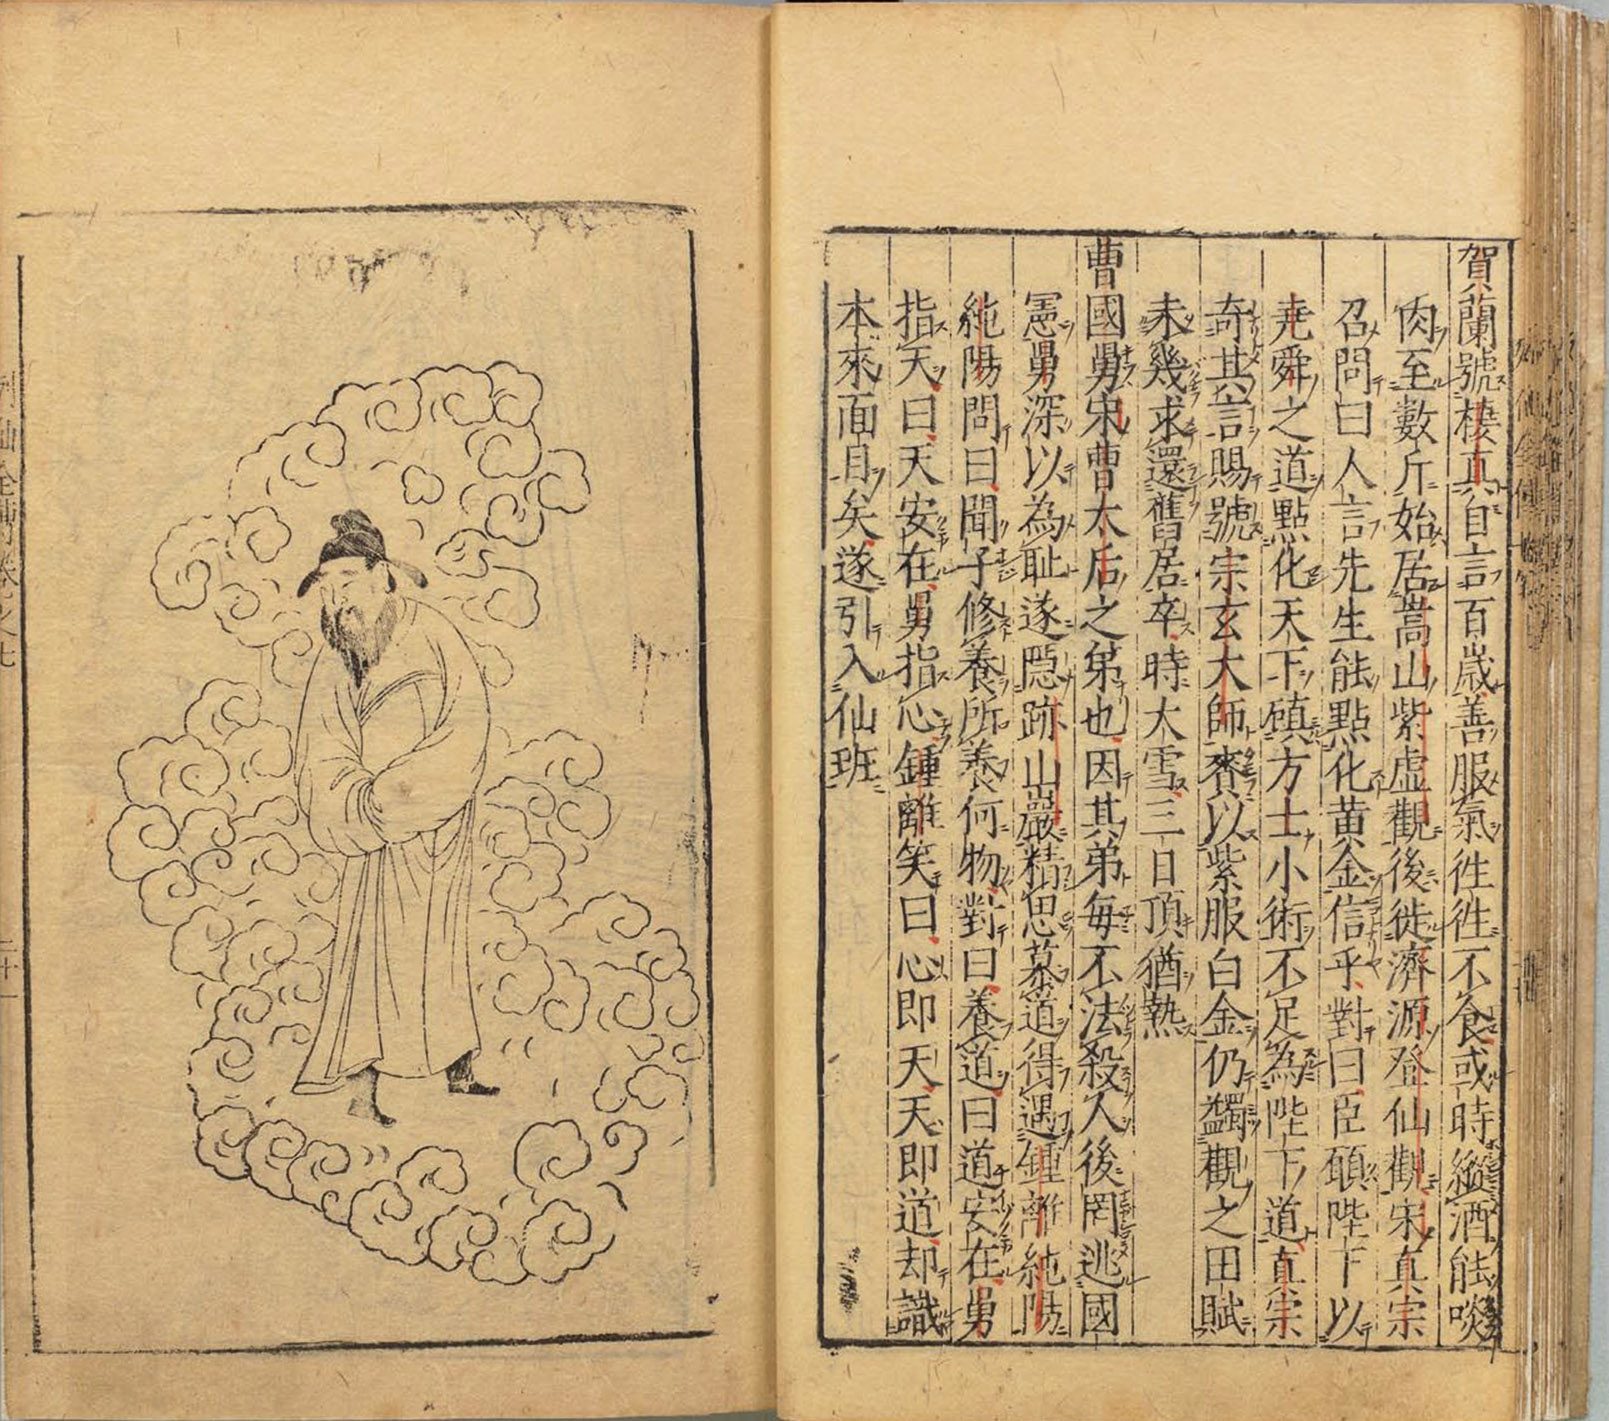 賀蘭號棲真自言百歲善服氣徃徃不食或時縱酒能啖
肉至數斤始居嵩山紫虛觀後徙濟源登仙觀宋真宗
召問曰人言先生能點化黄金信乎對曰臣願陛下以
堯舜之道點化天下願方士小術不足為陛下道真宗
奇其言賜號宗玄大師賚以紫服白金仍蠲觀之田賦
未幾求還舊居卒時大雪三日頂猶熱
曹國舅宋曹太后之弟也因其弟每不法殺人後罔逃國
憲舅深以為耻遂隱跡山巖精思慕道得遇鍾離純陽
純陽問曰聞子修養所養何物對曰養道曰道安在舅
指天曰天安在舅指心鍾離笑曰心即天天即道却識
本來面目矣遂引入仙班
列仙全傳卷之七